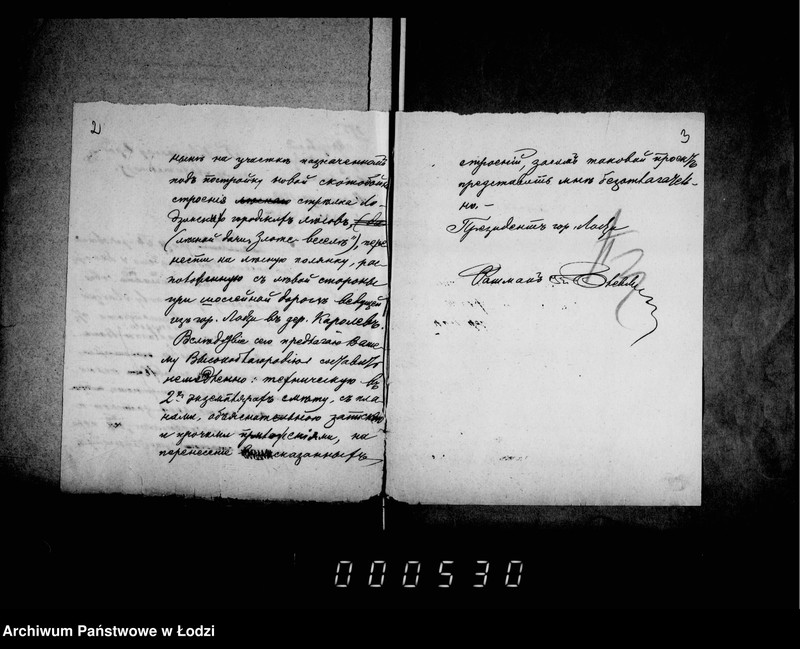 2
ныхъ на участкѣ назначенномъ
подъ постройку новой скотобойни
строенія стрѣлка Ло-
дзинскихъ городскихъ лѣсовъ,
(лѣсной дачи „Злоте-веселе“), пере-
нести на лѣсную полянку, рас-
положенную съ лѣвой стороны
при шоссейной дорогѣ ведущей
изъ гор. Лодзи въ дер. Каролевъ.
Вслѣдствіе сего предлагаю Ваше-
му Высокоблагородію составить
немедленно: техническую въ
2хъ экземплярахъ смѣту, съ пла-
нами, объяснительною запискою
и прочими приложеніями, на
перенесеніе сказанныхъ
3
строеній, засимъ таковой проектъ
представить мнѣ безотлагатель-
но. —
Президентъ гор. Лодзи
000530
Archiwum Państwowe w Łodzi